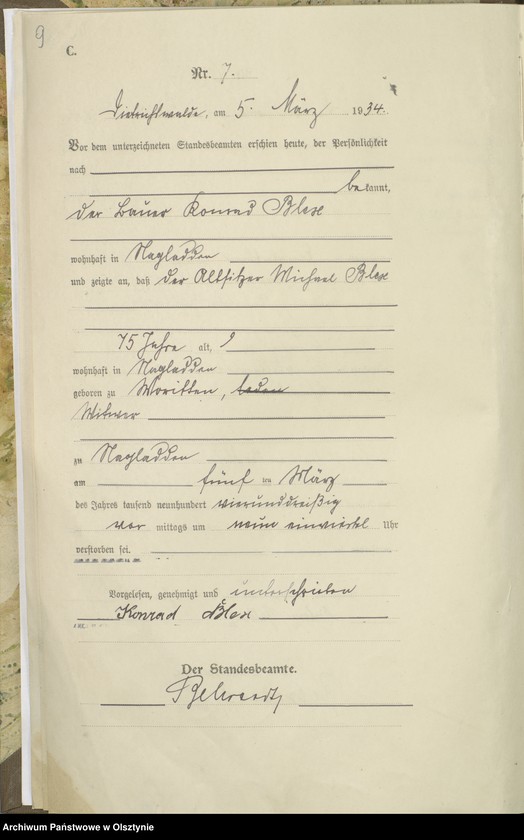 9
C.
Nr. 7.
Dietrichswalde, am 5. März 1934.
Vor dem unterzeichneten Standesbeamten erschien heute, der Persönlichkeit
nach
bekannt,
der Bauer Konrad Blex
wohnhaft in Nagladden
und zeigte an, daß der Altsitzer Michael Blex
75 Jahre alt,
wohnhaft in Nagladden
geboren zu Woritten,
Witwer
zu Nagladden
am fünften März
des Jahres tausend neunhundert vierunddreißig
vor mittags um neun einviertel Uhr
verstorben sei.
Vorgelesen, genehmigt und unterschrieben
Konrad Blex
Der Standesbeamte.
Archiwum Państwowe w Olsztynie